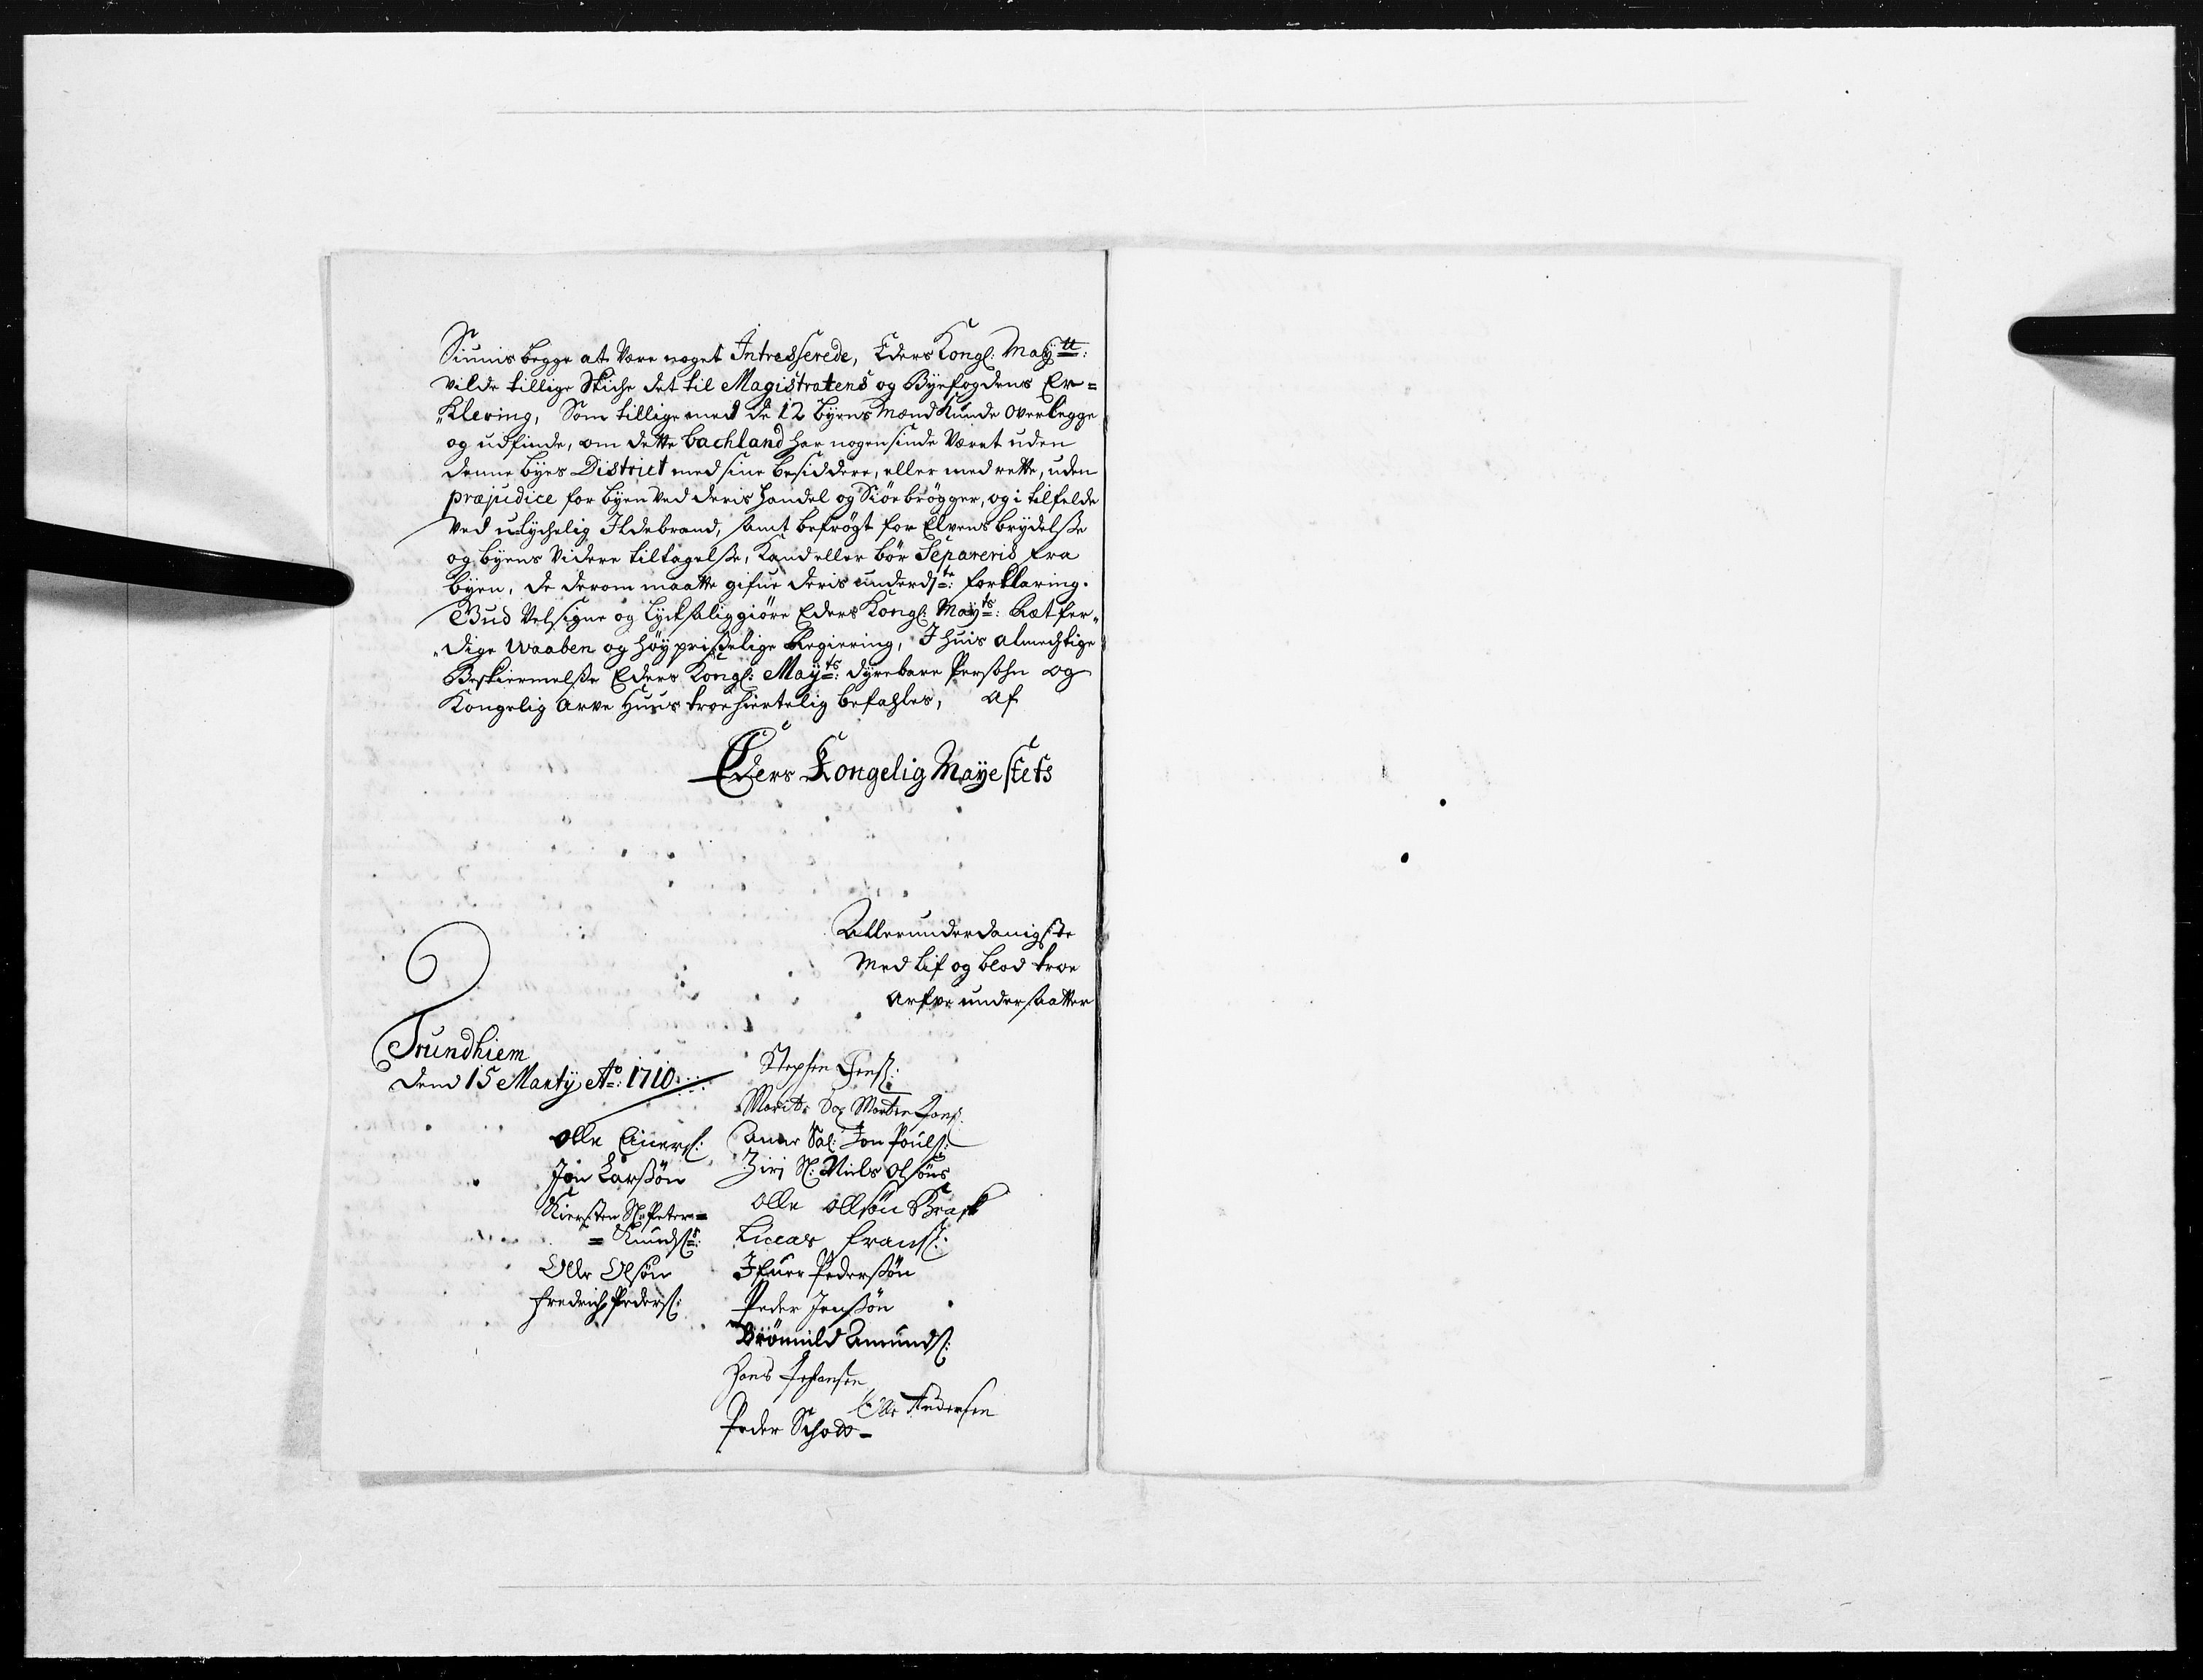 Siunis begge at Være noget Intresserede, Eders Kongl: May:tt:
vilde tillige Skiche det til Magistratens og Byefogdens Er=
„Klering, Som tillige med de 12 byens Mænd Kunde Overlegge
og udfinde, om dette bachland har nogensinde Været uden
denne byes District med sine besiddere, eller med rette, uden
præjudice for byen ved deris handel og Siøebrøgger, og i tilfelde
ved ulychelig Ildebrand, samt befrögt for Elvens brydelsse
og byens Videre tiltagelsse, Kand eller bör Separeris fra
byen, de derom maatte gifue deris underdste: forklaring.
Gud Velsigne og lycksaliggiöre Eders Kongl: Mayts: Rætfer„
„dige Waaben og höyprisselige Regiering, I huis almechtige
Beskiermelsse Eders Kongl: Mayts: dyrebare Persohn og
Kongelig Arve Huus troehiertelig befahles, af
Eders Kongelig Mayestets
Allerunderdanigste
Med lif og blod troe
Arfve undersaatter
Trundhiem
dend 15 Marty Ao: 1710
Stephen Jenss:
Marit Morten
Olle Einers:
Anne Sal: Jon Pouls:
Jon Larssön
Ziri Sl: Niels Olsöns
Kiersten Sl: Peter=
Olle Ollsön Brask
= Knuds:
Lucas frans:
Olle Olsön
Ifuer Pederssön
fredrich Peders:
Peder Jenssön
Brönnild Amunds:
Hans Johansen
Olle Andersen
Peder Schow